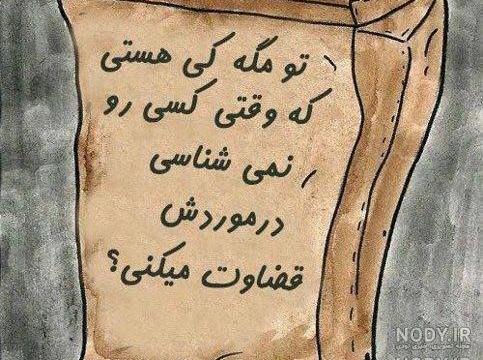 تو مگه کی هستی
که وقتی کسی رو
نمی شناسی
درموردش
قضاوت میکنی؟
NODY.IR